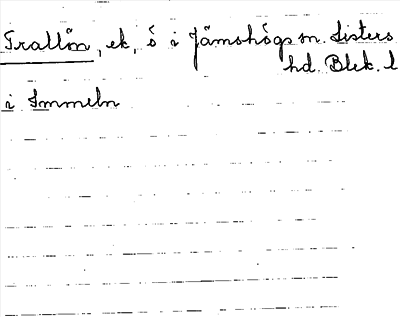 Trallön, ek, ö i Jämshögs sn. Listers
hd. Blek. l
i Immeln